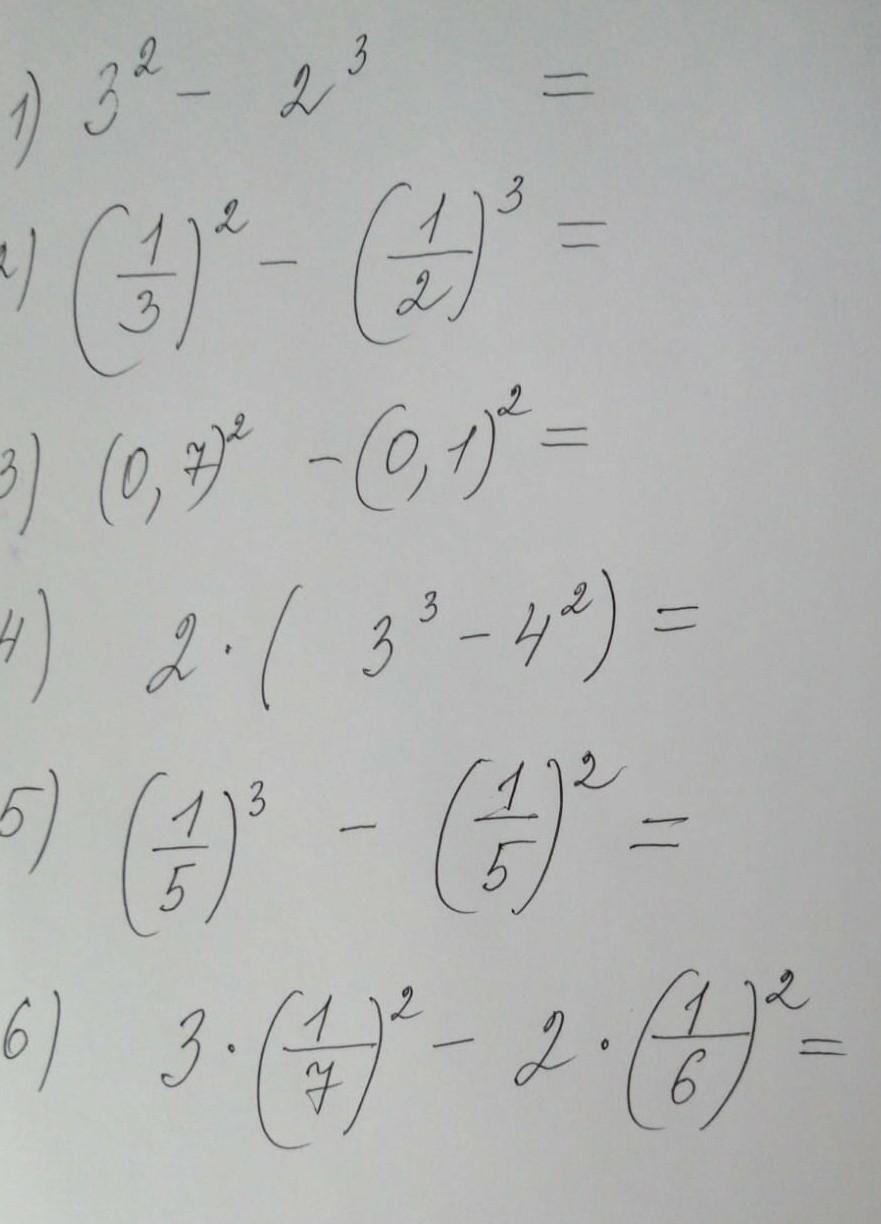 1) 3² - 2³ =
2) (1/3)² - (1/2)³ =
3) (0,7)² - (0,1)² =
4) 2 · (3³ - 4²) =
5) (1/5)³ - (1/5)² =
6) 3 · (1/7)² - 2 · (1/6)² =